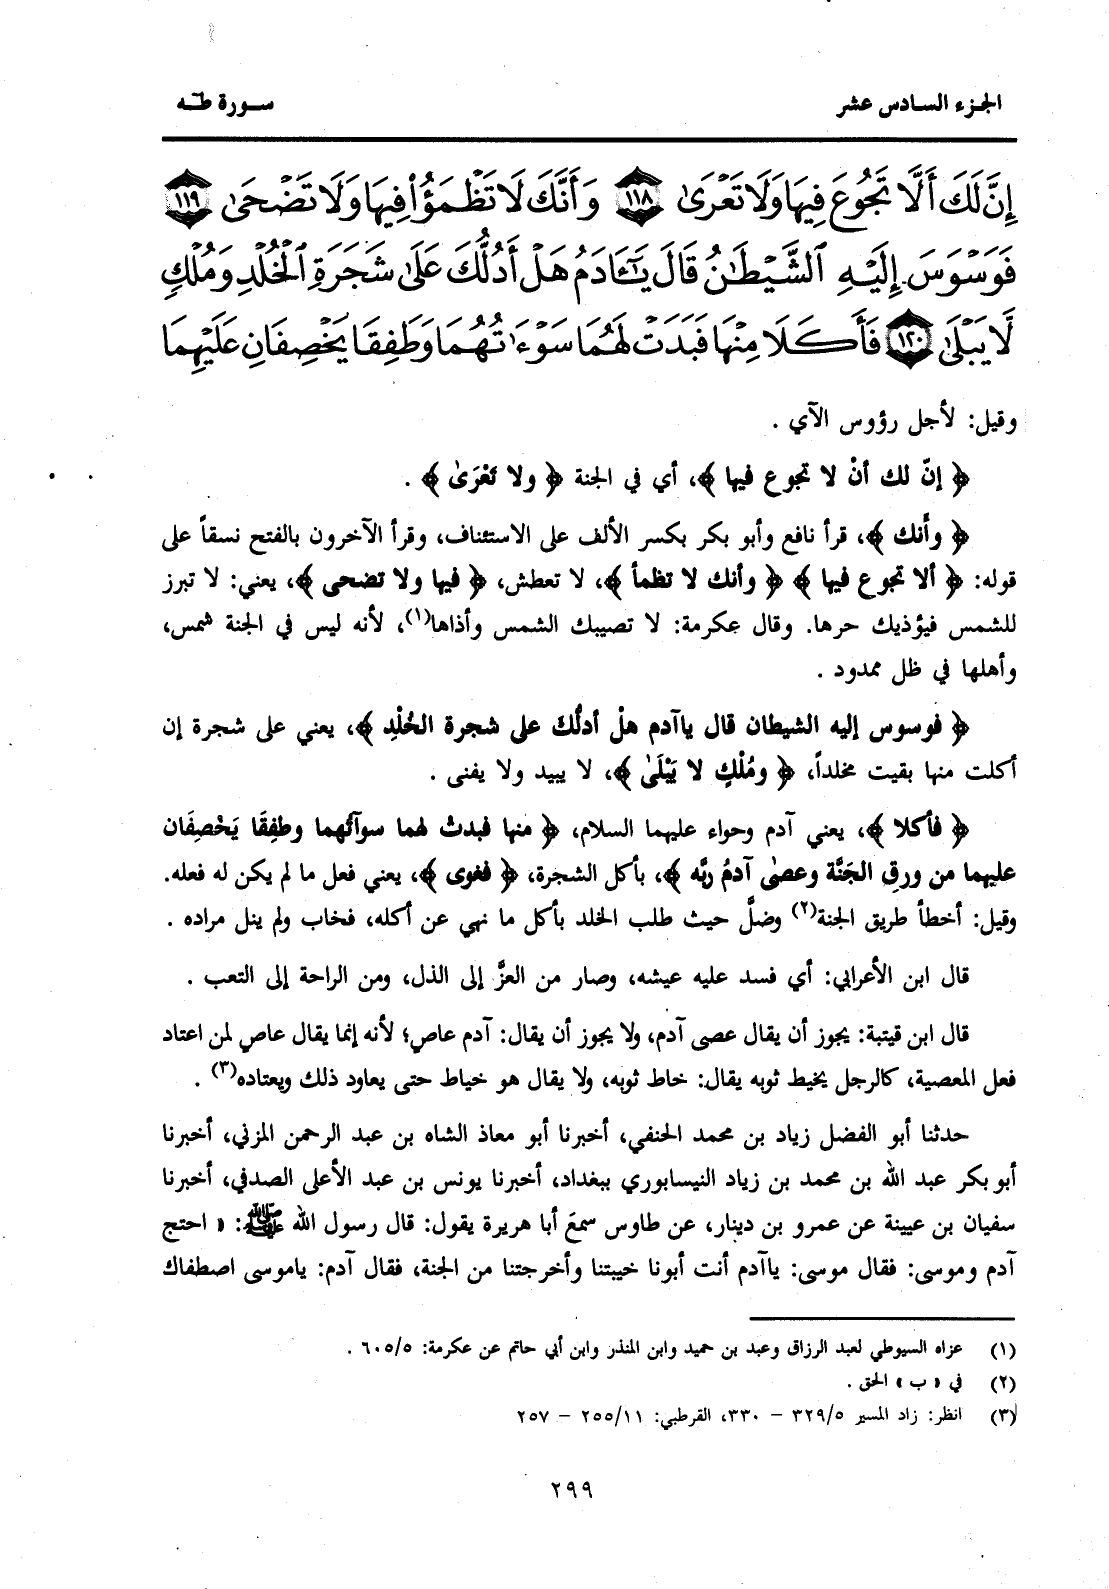 الجزء السادس عشر
سورة طه
إِنَّ لَكَ أَلَّا تَجُوعَ فِيهَا وَلَا تَعْرَىٰ ١١٨ وَأَنَّكَ لَا تَظْمَؤُا۟ فِيهَا وَلَا تَضْحَىٰ ١١٩
فَوَسْوَسَ إِلَيْهِ ٱلشَّيْطَٰنُ قَالَ يَٰٓـَٔادَمُ هَلْ أَدُلُّكَ عَلَىٰ شَجَرَةِ ٱلْخُلْدِ وَمُلْكٍ
لَّا يَبْلَىٰ ١٢٠ فَأَكَلَا مِنْهَا فَبَدَتْ لَهُمَا سَوْءَٰتُهُمَا وَطَفِقَا يَخْصِفَانِ عَلَيْهِمَا
وقيل: لأجل رؤوس الآي .
﴿ إنّ لك أنْ لا تجوع فيها ﴾، أي في الجنة ﴿ ولا تَعْرَىٰ ﴾ .
﴿ وأَنك ﴾، قرأ نافع وأبو بكر بكسر الألف على الاستئناف، وقرأ الآخرون بالفتح نسقاً على
قوله: ﴿ ألا تجوع فيها ﴾ ﴿ وأنك لا تظمأ ﴾، لا تعطش، ﴿ فيها ولا تضحى ﴾، يعني: لا تبرز
للشمس فيؤذيك حرها. وقال عكرمة: لا تصيبك الشمس وأذاها(١)، لأنه ليس في الجنة شمس،
وأهلها في ظل ممدود .
﴿ فوسوس إليه الشيطان قال ياآدم هلْ أدلُّك على شجرة الخُلْدِ ﴾، يعني على شجرة إن
أكلت منها بقيت مخلداً، ﴿ ومُلْكٍ لا يَبْلَىٰ ﴾، لا يبيد ولا يفنى .
﴿ فأكلا ﴾، يعني آدم وحواء عليهما السلام، ﴿ منها فبدتْ لهما سوآتُهما وطفِقَا يَخْصِفَان
عليهما من ورقِ الجَنَّة وعصىٰ آدمُ ربَّه ﴾، بأكل الشجرة، ﴿ فغوى ﴾، يعني فعل ما لم يكن له فعله.
وقيل: أخطأ طريق الجنة(٢) وضلَّ حيث طلب الخلد بأكل ما نهي عن أكله، فخاب ولم ينل مراده .
قال ابن الأعرابي: أي فسد عليه عيشه، وصار من العزِّ إلى الذل، ومن الراحة إلى التعب .
قال ابن قيتبة: يجوز أن يقال عصى آدم، ولا يجوز أن يقال: آدم عاص؛ لأنه إنما يقال عاص لمن اعتاد
فعل المعصية، كالرجل يخيط ثوبه يقال: خاط ثوبه، ولا يقال هو خياط حتى يعاود ذلك ويعتاده(٣) .
حدثنا أبو الفضل زياد بن محمد الحنفي، أخبرنا أبو معاذ الشاه بن عبد الرحمن المزني، أخبرنا
أبو بكر عبد الله بن محمد بن زياد النيسابوري ببغداد، أخبرنا يونس بن عبد الأعلى الصدفي، أخبرنا
سفيان بن عيينة عن عمرو بن دينار، عن طاوس سمعَ أبا هريرة يقول: قال رسول الله ﷺ: « احتج
آدم وموسى: فقال موسى: ياآدم أنت أبونا خيبتنا وأخرجتنا من الجنة، فقال آدم: ياموسى اصطفاك
(١) عزاه السيوطي لعبد الرزاق وعبد بن حميد وابن المنذر وابن أبي حاتم عن عكرمة: ٦٠٥/٥ .
(٢) في « ب » الحق .
(٣) انظر: زاد المسير ٣٢٩/٥ – ٣٣٠، القرطبي: ٢٥٥/١١ – ٢٥٧
٢٩٩